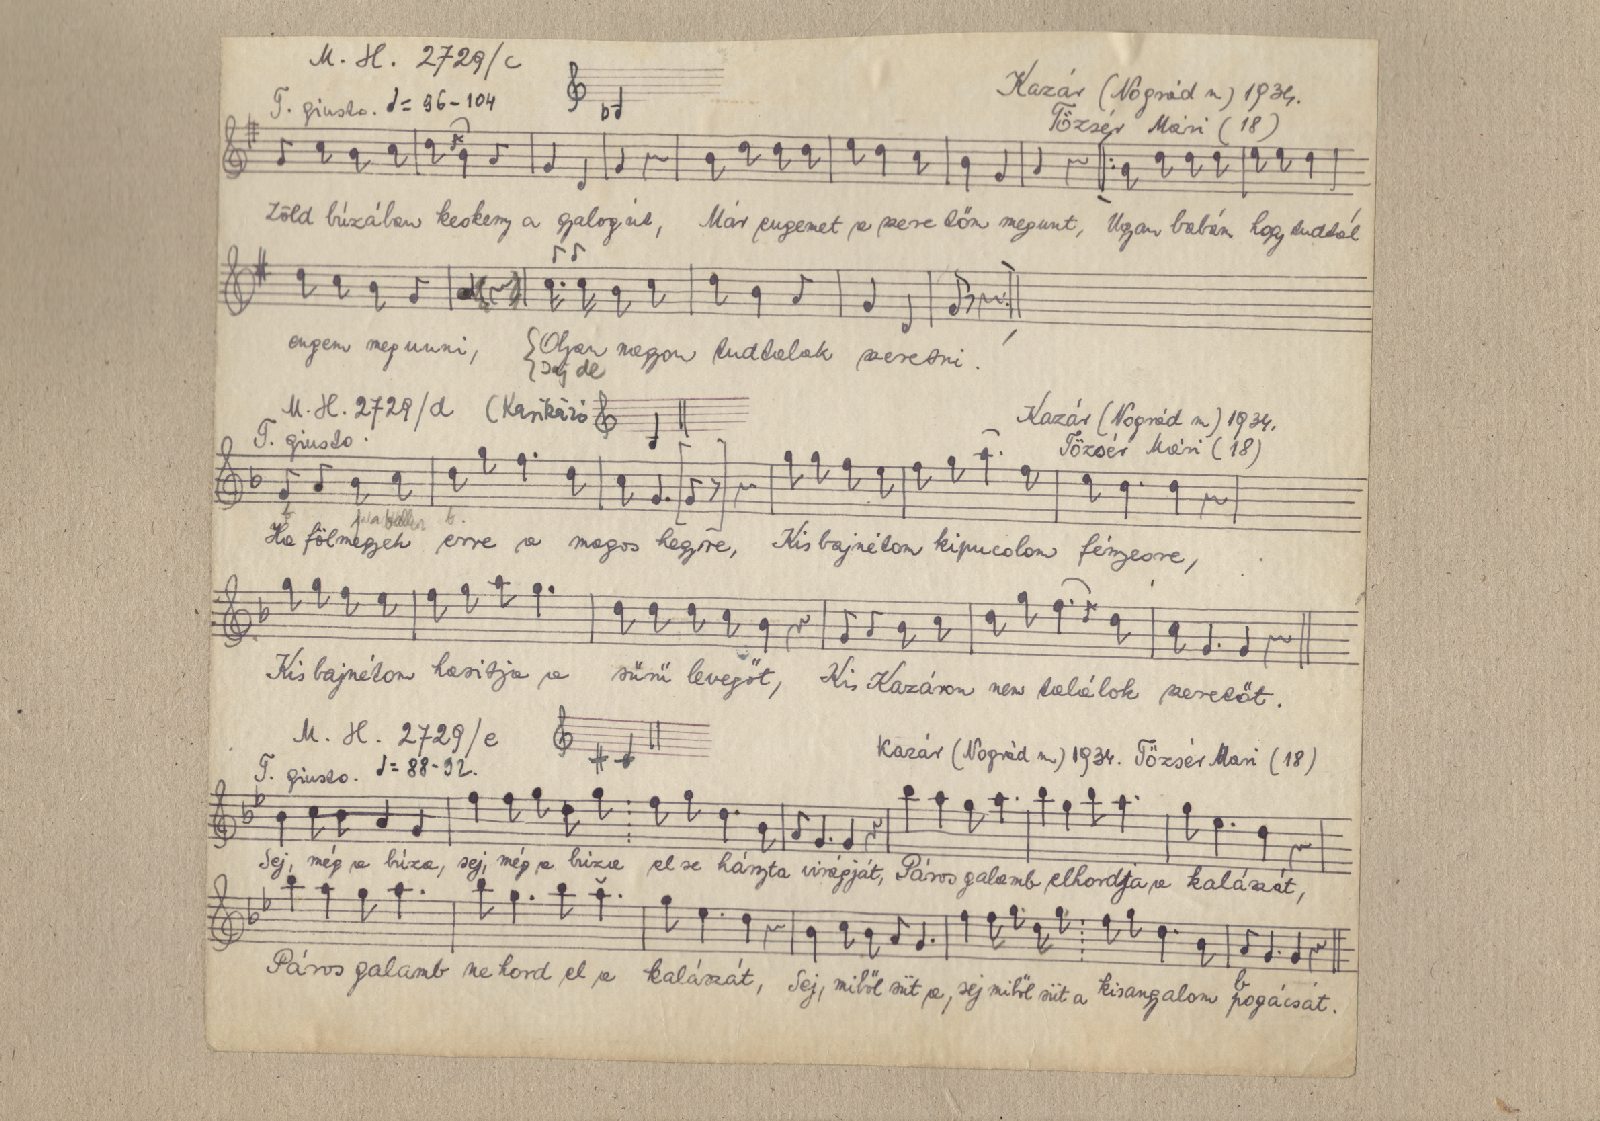 M. H. 2729/c
T. giusto. ♩= 96-104
Kazár (Nográd m) 1934.
Tőzsér Mári (18)
Zöld búzában keskeny a gyalogút, Már engemet a szeretőm megunt, Ugyan babám hogy tudtál
engem megunni, Olyan nagyon tudtalak szeretni.
Saj de
M. H. 2729/d (Karikázó
T. giusto.
Kazár (Nográd m) 1934.
Tőzsér Mári (18)
Ha fölmegyek erre a magos hegyre, Kis bajnétom kipucolom fényesre,
Kis bajnétom hasitja a sűrű levegőt, Kis Kazáron nem találok szeretőt.
M. H. 2729/e
T. giusto. ♩= 88-92.
Kazár (Nográd m) 1934. Tőzsér Mari (18)
Sej, még a búza, sej, még a búza el se hányta virágját, Páros galamb elhordja a kalászát,
Páros galamb ne hord el a kalászát, Sej, miből süt a, sej miből süt a kisangyalom pogácsát.